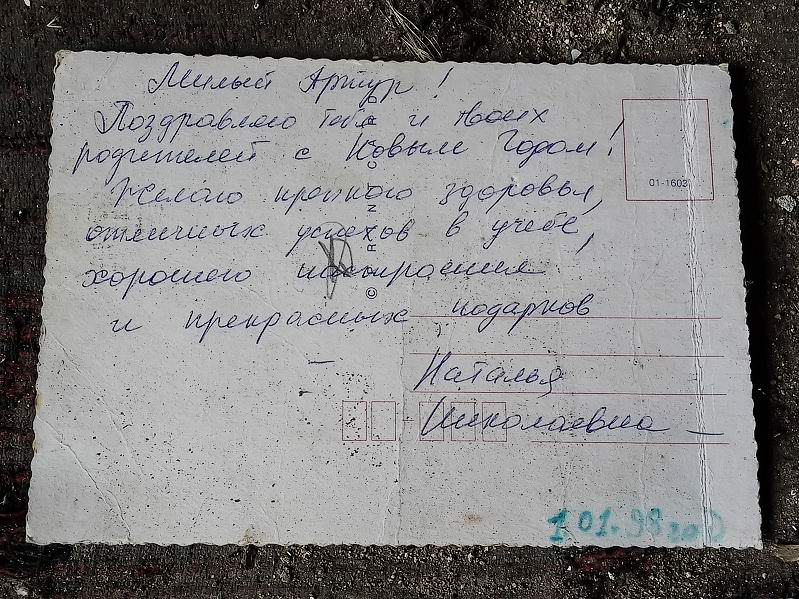 Милый Артур!
Поздравляю тебя и твоих
родителей с Новым Годом!
Желаю крепкого здоровья,
отличных успехов в учебе,
хорошего настроения
и прекрасных подарков
Наталья
Николаевна
01-1603
1 01.98 год